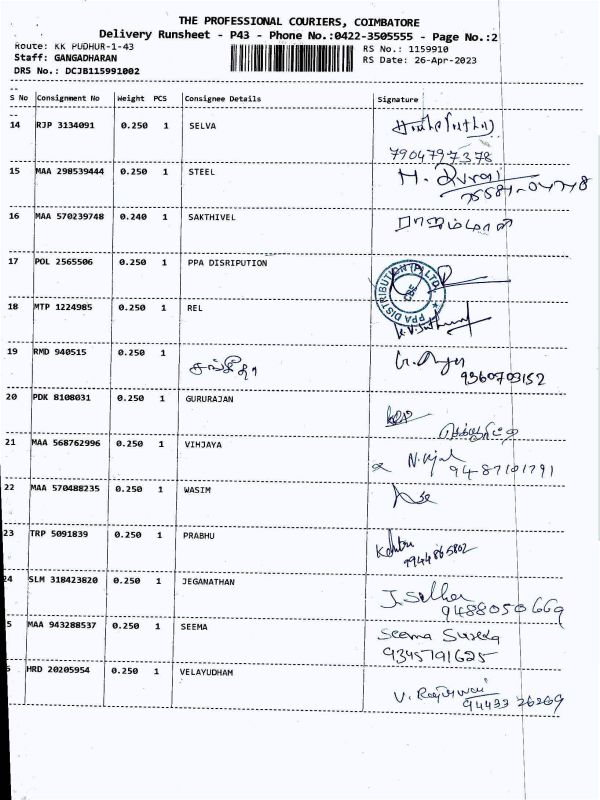 THE PROFESSIONAL COURIERS, COIMBATORE
Delivery Runsheet - P43 - Phone No.:0422-3505555 - Page No.:2
Route: KK PUDHUR-1-43 RS No.: 1159910
Staff: GANGADHARAN RS Date: 26-Apr-2023
DRS No.: DCJB115991002
S No Consignment No Weight PCS Consignee Details Signature
14 RJP 3134091 0.250 1 SELVA
7904797378
15 MAA 298539444 0.250 1 STEEL
75581-04778
16 MAA 570239748 0.240 1 SAKTHIVEL
17 POL 2565506 0.250 1 PPA DISRIPUTION
PPA DISTRIBUTION (P) LTD.
CBE
18 MTP 1224985 0.250 1 REL
19 RMD 940515 0.250 1
9360703152
20 PDK 8108031 0.250 1 GURURAJAN
21 MAA 568762996 0.250 1 VIHJAYA
9487101791
22 MAA 570488235 0.250 1 WASIM
23 TRP 5091839 0.250 1 PRABHU
9944865802
24 SLM 318423820 0.250 1 JEGANATHAN
9488050669
5 MAA 943288537 0.250 1 SEEMA Seema
9345791625
HRD 20205954 0.250 1 VELAYUDHAM
94433 26269